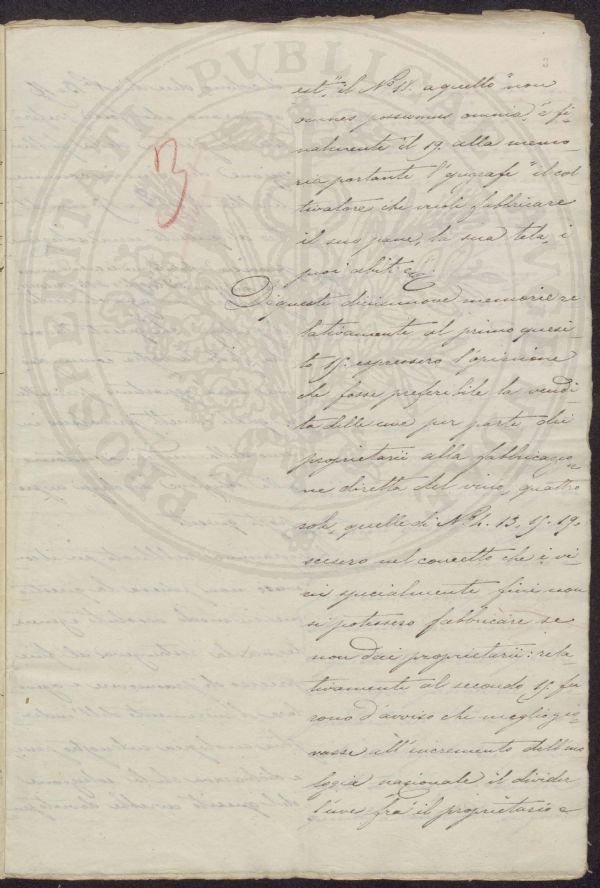 3
est," il N.° 11. a quello "non
omnes possumus omnia," e fi-
nalmente il 19. alla memo-
ria portante l'epigrafe "il col-
tivatore che vuole fabbricare
il suo pane, la sua tela, i
suoi abiti
Di queste diciannove memorie re-
lativamente al primo quesi-
to 15. espressero l'opinione
che fosse preferibile la vendi-
ta delle uve per parte dei
proprietarii alla fabbricazio-
ne diretta del vino, quattro
sole, quelle di N.° 4. 13. 15. 19.
scesero nel concetto che i vi-
ni specialmente fini non
si potessero fabbricare se
non dai proprietarii: rela-
tivamente al secondo 15. fu-
rono d'avviso che meglio gio-
vasse all'incremento dell'eno-
logia nazionale il divider
l'uve frà il proprietario e
PROSPERITATI PUBLICAE